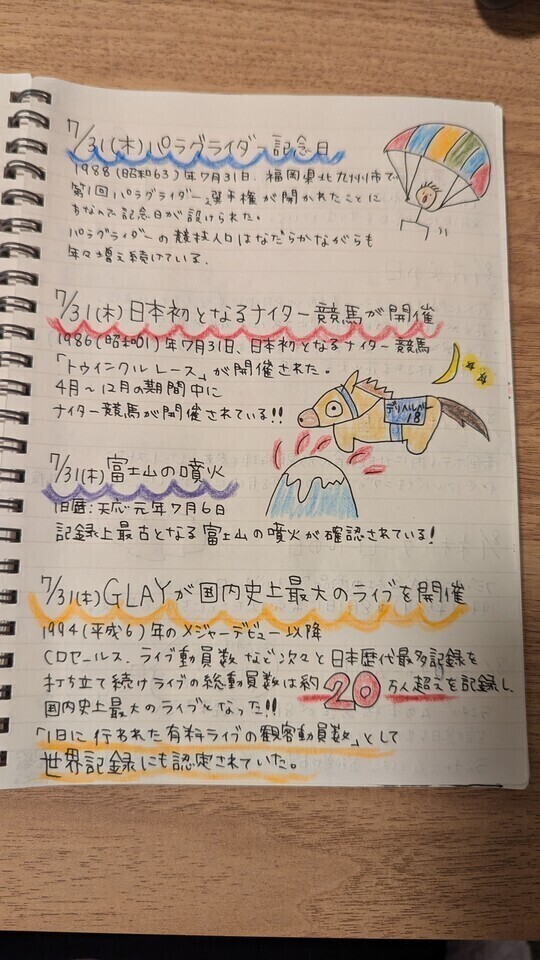 7/31(木)パラグライダー記念日
1988(昭和63)年7月31日、福岡県北九州市で
第1回パラグライダー選手権が開かれたことに
ちなんで記念日が設けられた。
パラグライダーの競技人口はなだらかながらも
年々増え続けている。
7/31(木)日本初となるナイター競馬が開催
1986(昭和61)年7月31日、日本初となるナイター競馬
「トゥインクルレース」が開催された。
4月~12月の期間中に
ナイター競馬が開催されている!!
18
7/31(木)富士山の噴火
旧暦:天応元年7月6日
記録上最古となる富士山の噴火が確認されている!
7/31(木)GLAYが国内史上最大のライブを開催
1994(平成6)年のメジャーデビュー以降
CDセールス、ライブ動員数など次々と日本歴代最多記録を
打ち立て続けライブの総動員数は約20万人超えを記録し、
国内史上最大のライブとなった!!
「1日に行われた有料ライブの観客動員数」として
世界記録にも認定されていた。